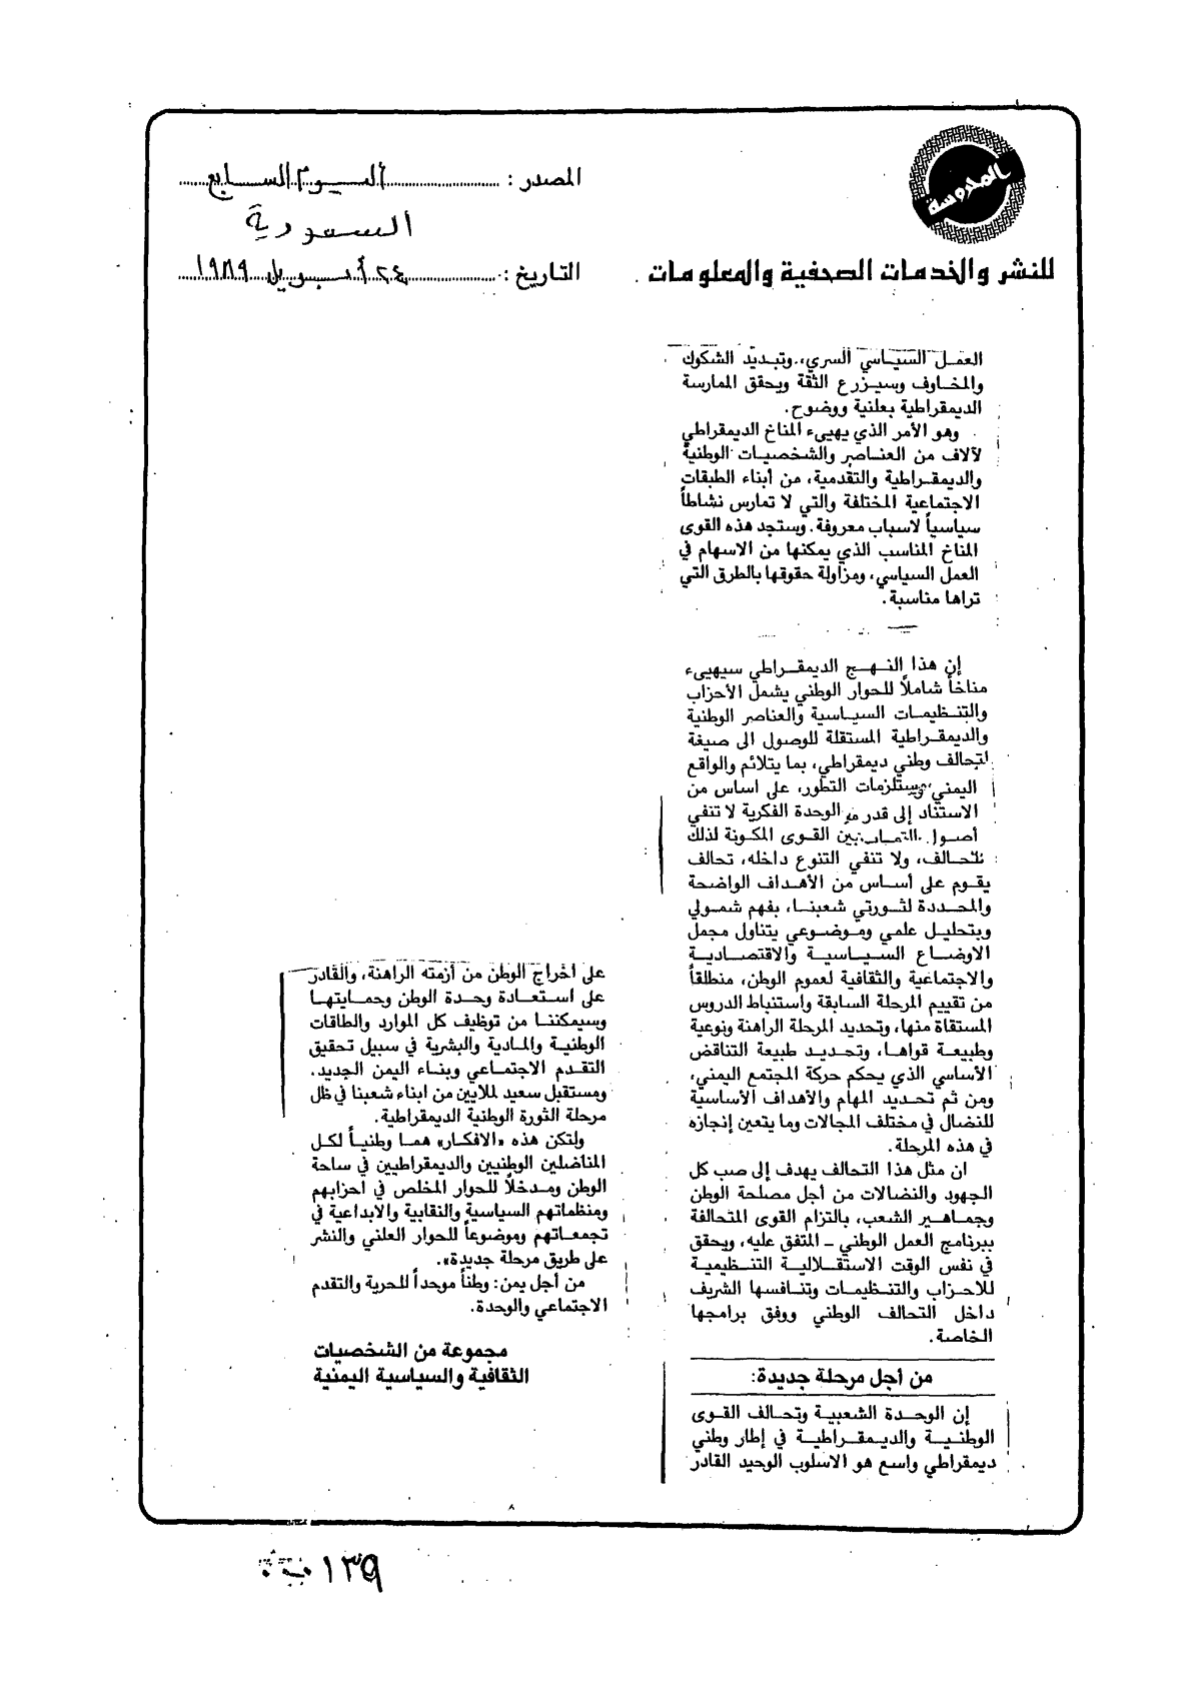 المحروسة
للنشر والخدمات الصحفية والمعلومات
المصدر : اليوم السابع
السعودية
التاريخ : ٢٤ ١٩٨٩
العمل السياسي السري، وتبديد الشكوك
والمخاوف وسيزرع الثقة ويحقق الممارسة
الديمقراطية بعلنية ووضوح.
وهو الأمر الذي يهيىء المناخ الديمقراطي
لآلاف من العناصر والشخصيات الوطنية
والديمقراطية والتقدمية، من أبناء الطبقات
الاجتماعية المختلفة والتي لا تمارس نشاطاً
سياسياً لاسباب معروفة. وستجد هذه القوى
المناخ المناسب الذي يمكنها من الاسهام في
العمل السياسي، ومزاولة حقوقها بالطرق التي
تراها مناسبة.
إن هذا النهج الديمقراطي سيهيىء
مناخاً شاملاً للحوار الوطني يشمل الأحزاب
والتنظيمات السياسية والعناصر الوطنية
والديمقراطية المستقلة للوصول الى صيغة
لتحالف وطني ديمقراطي، بما يتلائم والواقع
اليمني، ومستلزمات التطور، على اساس من
الاستناد إلى قدر من الوحدة الفكرية لا تنفي
أصول بين القوى المكونة لذلك
التحالف، ولا تنفي التنوع داخله، تحالف
يقوم على أساس من الأهداف الواضحة
والمحددة لثورتي شعبنا، بفهم شمولي
وبتحليل علمي وموضوعي يتناول مجمل
الاوضاع السياسية والاقتصادية
والاجتماعية والثقافية لعموم الوطن، منطلقاً
من تقييم المرحلة السابقة واستنباط الدروس
المستقاة منها، وتحديد المرحلة الراهنة ونوعية
وطبيعة قواها، وتحديد طبيعة التناقض
الأساسي الذي يحكم حركة المجتمع اليمني،
ومن ثم تحديد المهام والأهداف الأساسية
للنضال في مختلف المجالات وما يتعين إنجازه
في هذه المرحلة.
ان مثل هذا التحالف يهدف إلى صب كل
الجهود والنضالات من أجل مصلحة الوطن
وجماهير الشعب، بالتزام القوى المتحالفة
ببرنامج العمل الوطني ـ المتفق عليه، ويحقق
في نفس الوقت الاستقلالية التنظيمية
للاحزاب والتنظيمات وتنافسها الشريف
داخل التحالف الوطني ووفق برامجها
الخاصة.
من أجل مرحلة جديدة:
إن الوحدة الشعبية وتحالف القوى
الوطنية والديمقراطية في إطار وطني
ديمقراطي واسع هو الاسلوب الوحيد القادر
على اخراج الوطن من أزمته الراهنة، والقادر
على استعادة وحدة الوطن وحمايتها
وسيمكننا من توظيف كل الموارد والطاقات
الوطنية والمادية والبشرية في سبيل تحقيق
التقدم الاجتماعي وبناء اليمن الجديد.
ومستقبل سعيد لملايين من ابناء شعبنا في ظل
مرحلة الثورة الوطنية الديمقراطية.
ولتكن هذه «الافكار» هما وطنياً لكل
المناضلين الوطنيين والديمقراطيين في ساحة
الوطن ومدخلاً للحوار المخلص في احزابهم
ومنظماتهم السياسية والنقابية والابداعية في
تجمعاتهم وموضوعاً للحوار العلني والنشر
على طريق مرحلة جديدة».
من أجل يمن: وطناً موحداً للحرية والتقدم
الاجتماعي والوحدة.
مجموعة من الشخصيات
الثقافية والسياسية اليمنية
١٣٩